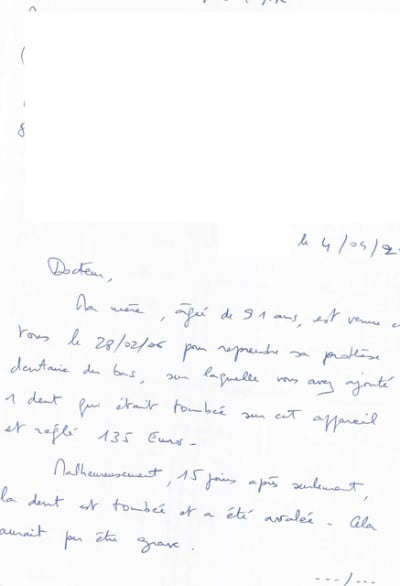 le 4/04/2
Docteur,
Ma mère, âgée de 91 ans, est venue c
vous le 28/02/06 pour reprendre sa prothèse
dentaire du bas, sur laquelle vous avez ajouté
1 dent qui était tombée sur cet appareil
et réglé 135 Euros.
Malheureusement, 15 jours après seulement,
la dent est tombée et a été avalée. Cela
aurait pu être grave.
---/---